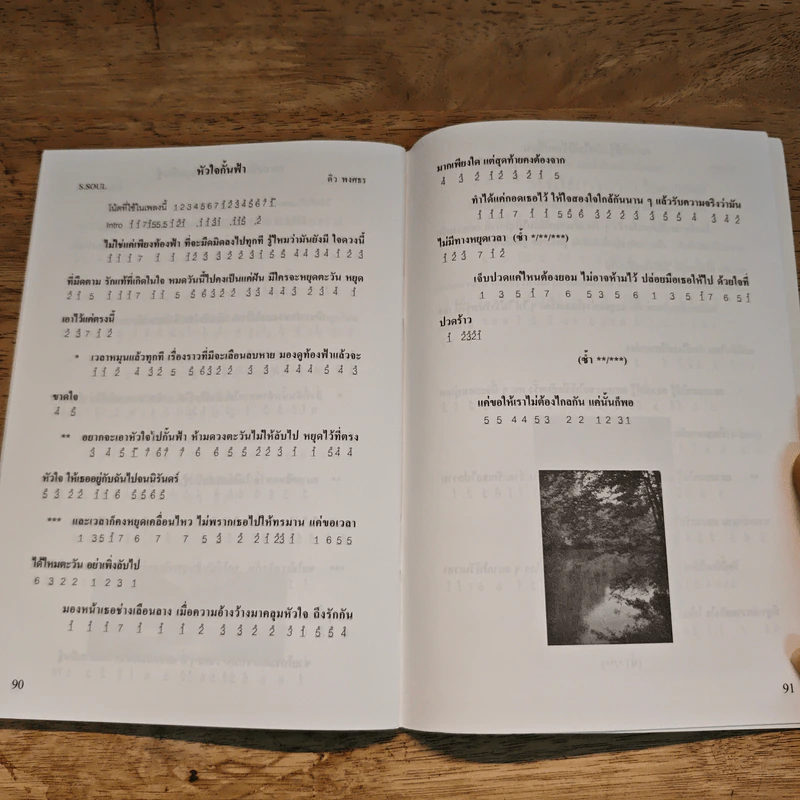 หัวใจกั้นฟ้า
S.SOUL ดิว พงศธร
โน้ตที่ใช้ในเพลงนี้ 1 2 3 4 5 6 7 1̇ 2̇ 3̇ 4̇ 5̇ 6̇ 7̇ 1̇
Intro
ไม่ใช่แค่เพียงท้องฟ้า ที่จะมืดมิดลงไปทุกที รู้ไหมว่ามันยังมี ใจดวงนี้
ที่มืดตาม รักแท้ที่เกิดในใจ หมดวันนี้ไปคงเป็นแค่ฝัน มีใครจะหยุดตะวัน หยุด
เอาไว้แค่ตรงนี้
2̇ 3̇ 7 1̇ 2̇
* เวลาหมุนแล้วทุกที เรื่องราวที่มีจะเลือนลบหาย มองดูท้องฟ้าแล้วจะ
ขาดใจ
4̇ 5̇
** อยากจะเอาหัวใจไปกั้นฟ้า ห้ามดวงตะวันไม่ให้ลับไป หยุดไว้ที่ตรง
หัวใจ ให้เธออยู่กับฉันไปจนนิรันดร์
*** และเวลาก็คงหยุดเคลื่อนไหว ไม่พรากเธอไปให้ทรมาน แค่ขอเวลา
1 3 5 1̇ 7 6 7 7 5 3̇ 2̇ 2̇ 1̇ 2̇3̇1̇ 1 6 5 5
ได้ไหมตะวัน อย่าเพิ่งลับไป
6 3 2 2 1 2 3 1
มองหน้าเธอช่างเลือนลาง เมื่อความอ้างว้างมาคลุมหัวใจ ถึงรักกัน
1̇ 1̇ 1̇ 7 1̇ 1̇ 1̇ 2̇ 3̇ 3̇ 2̇ 2̇ 3̇ 1̇ 5̇ 5̇ 4̇
90
มากเพียงใด แต่สุดท้ายคงต้องจาก
4̇ 3̇ 2̇ 1̇ 2̇ 3̇ 2̇ 1̇ 5
ทำได้แค่กอดเธอไว้ ให้สองใจใกล้กันนาน ๆ แล้วรับความจริงว่ามัน
ไม่มีทางหยุดเวลา (ซ้ำ */**/***)
1̇ 2̇ 3̇ 7 1̇ 2̇
เจ็บปวดแค่ไหนต้องยอม ไม่อาจห้ามไว้ ปล่อยมือเธอให้ไป ด้วยใจที่
1 3 5 1̇ 7 6 5 3 5 6 1 3 5 1̇ 7 6 5 1̇
ปวดร้าว
1̇ 2̇3̇2̇1̇
(ซ้ำ **/***)
แค่ขอให้เราไม่ต้องไกลกัน แค่นั้นก็พอ
5 5 4 4 5 3 2 2 1 2 3 1
91